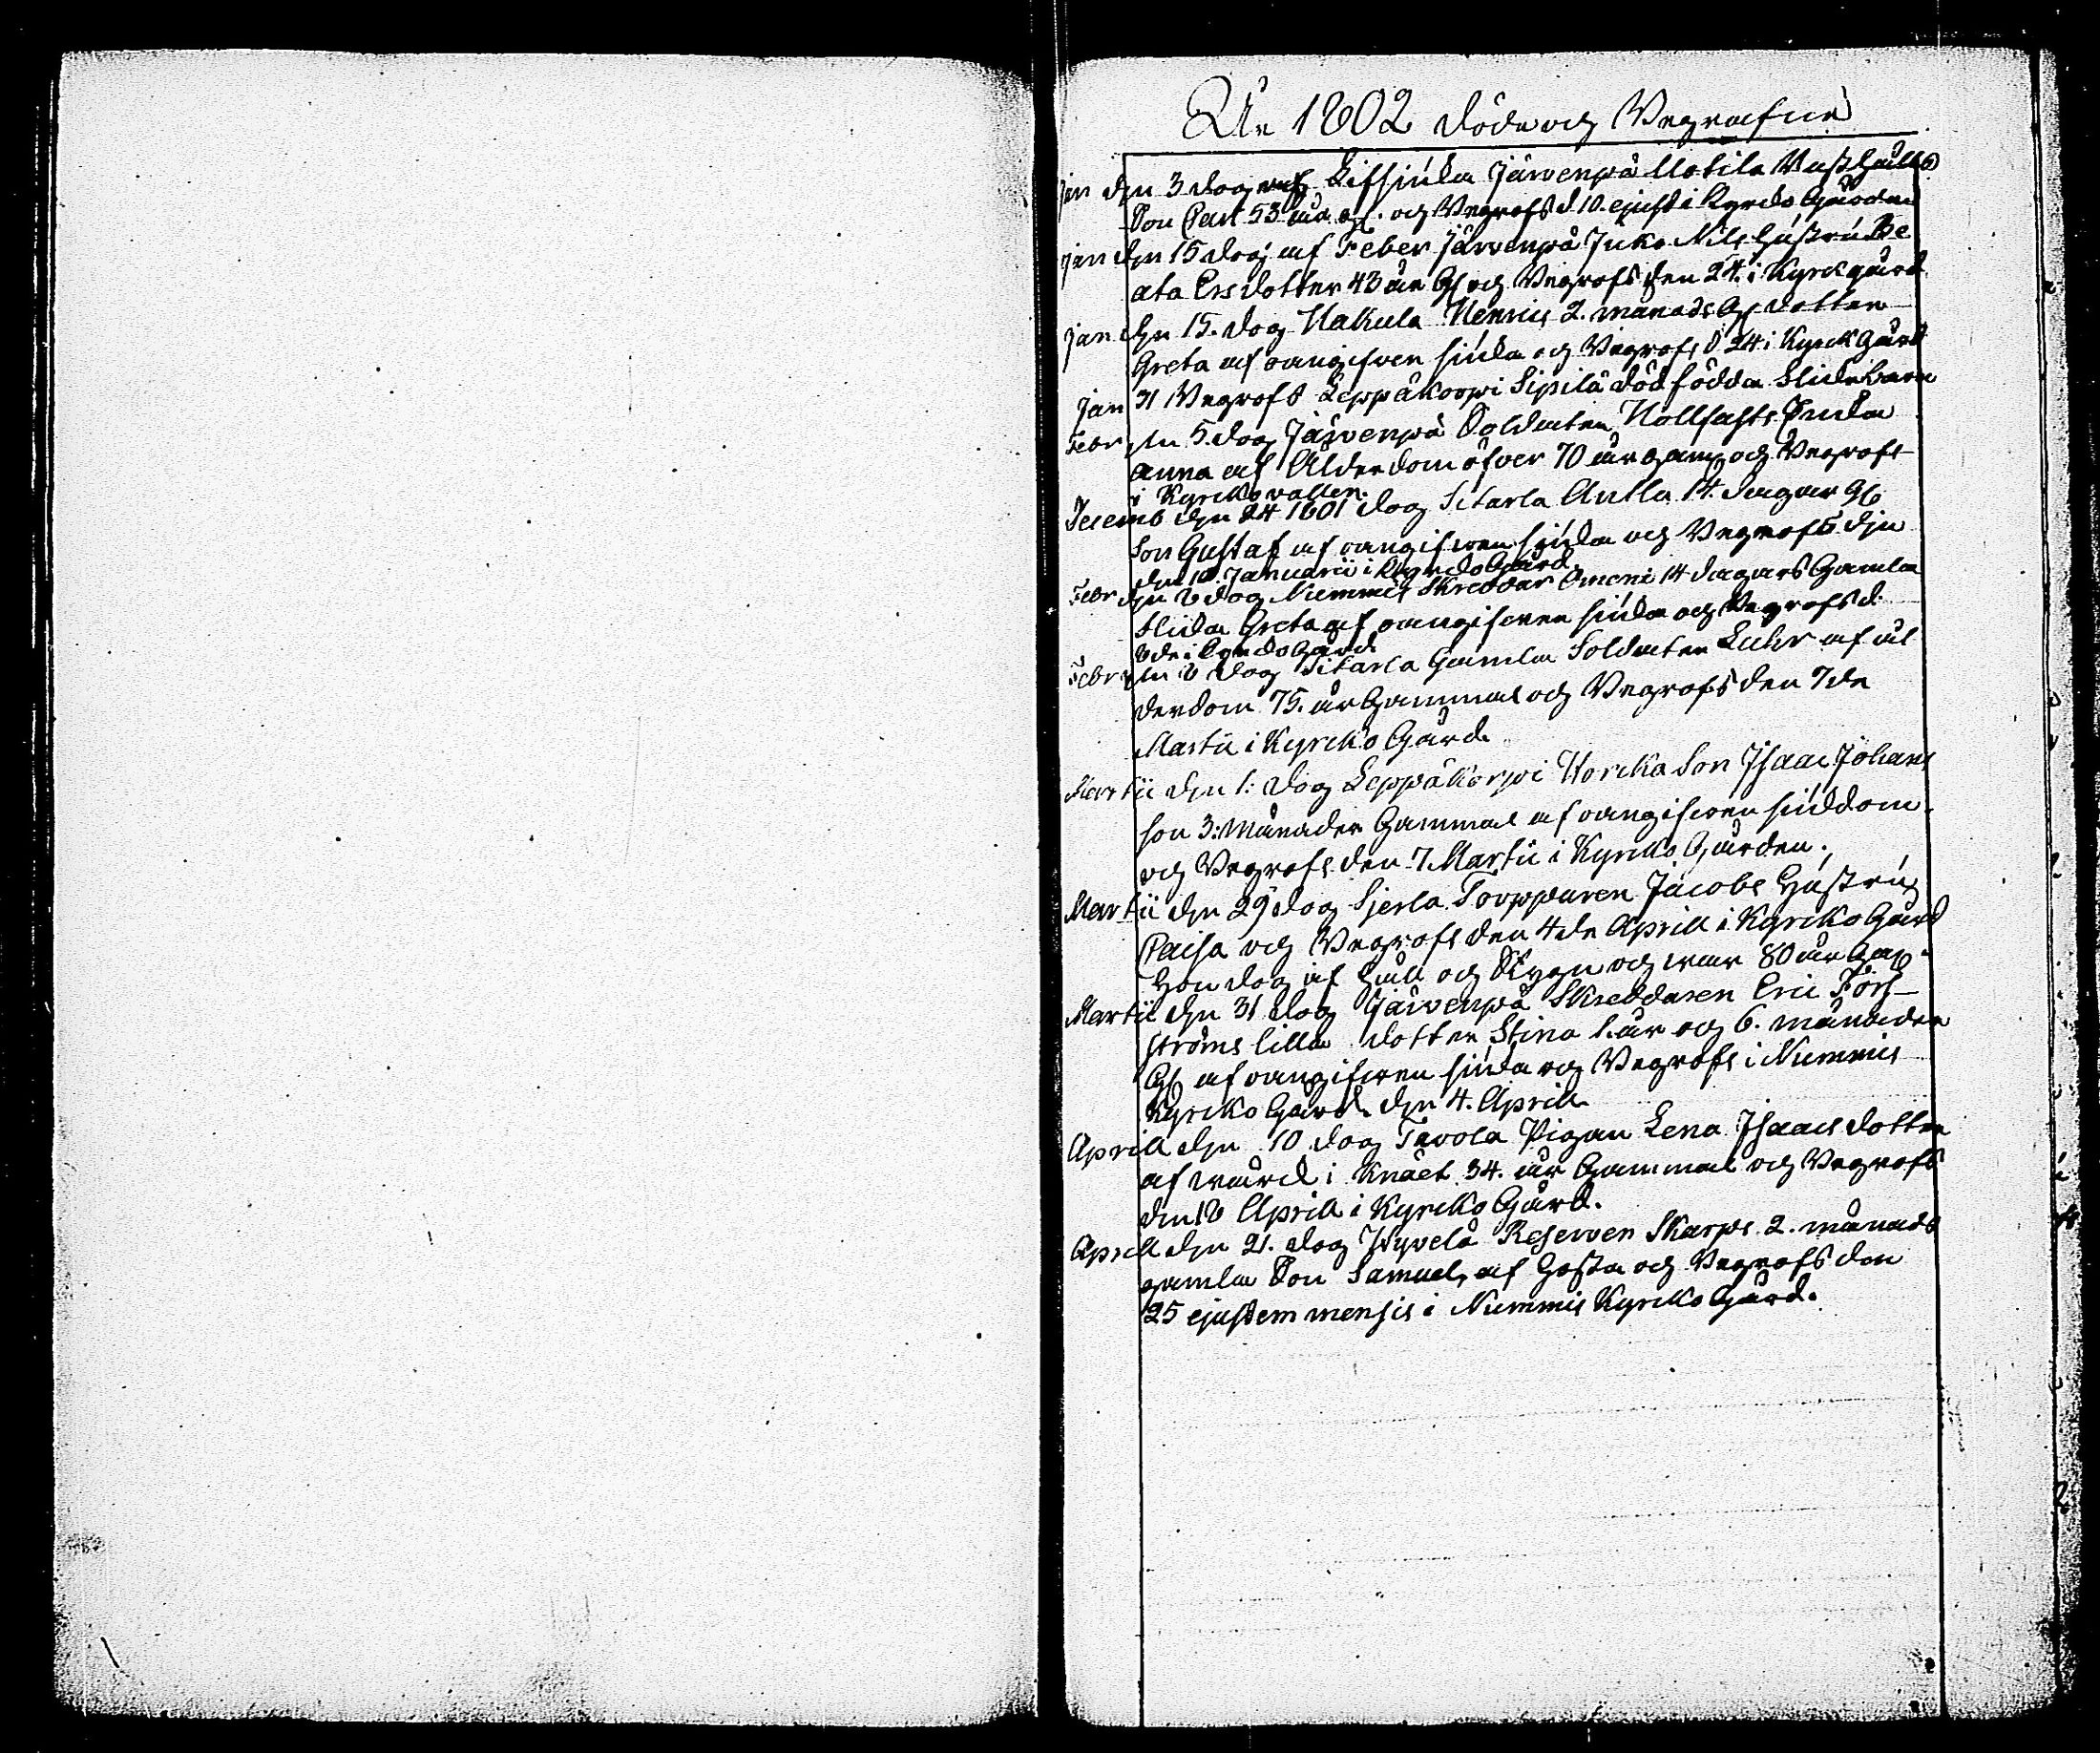 År 1802 döde och Begrafne
Jan den 3 dog af Lifsiuka Järvenpä Uotila
Son Carl 53 åra gl. och Begrofs d 10. ejusd i Kyrcko Gården
Jan den 15 dog af Feber Järvenpä Juko Nils Hustru Be
ata Ersdotter 43 åar Gl och Begrofs den 24. i Kyrckgård
Jan den 15. dog Hakula Henrics 2. månads Gl dotter
Greta af oangifven siuka och Begrofs d 24 i Kyrckgård
Jan 31 Begrofs Leppäkorpi Sipilä dödfödda Flickebarn
Febr den 5. dog Järvenpä Soldaten Hollfasts Enka
Anna af Ålderdom öfver 70 åar gamal och Begrofs
i Kyrckovallen.
Decemb den 24 1801 dog Sitarla Antla 14. dagar Gl
Son Gustaf af oangifwen siuka och Begrofs den
den 10. Januarii i Kyrcko Gård.
Febr den 8 dog Nummis Skreddar 14 dagars Gamla
flicka Greta af oangifwen siuka och Begrofs d.
i Kyrcko Gård
Febr den 18 dog Sitarla Gamla Soldaten Luhr af ål
derdom 75. år Gammal och Begrofs den 7de
Martii i Kyrcko Gård.
Martii den 1: dog Leppäkorpi Horcka Son Isaac Johans
son 3: Månader Gammal af oangifwen siukdom
och Begrofs den 7 Martii i Kyrcko Gården.
Martii den 29 dog Sjerla Torpparen Jacobs Hustru
Caisa och Begrofs den 4de Aprill i Kyrcko Gård
Hon dog af håll och Styng och war 80 år Gam.
Martii den 31 dog Järvenpä Skreddaren Eric Fors-
ströms lilla dotter Stina 1. år och 6. månader
Gl af oangifwen siuka och Begrofs i Nummis
Kyrcko Gård den 4. Aprill.
Aprill den 10 dog Tavola Pigan Lena Isaacs dotter
af wärck i Knäet 34. år Gammal och Begrofs
den 18 Aprill i Kyrcko Gård.
Aprill den 21. dog Hyvelä Reserven Skarps 2. månads
gamla Son Samuel, af Hosta och Begrofs den
25 ejusdem mensis i Nummis Kyrcko Gård.